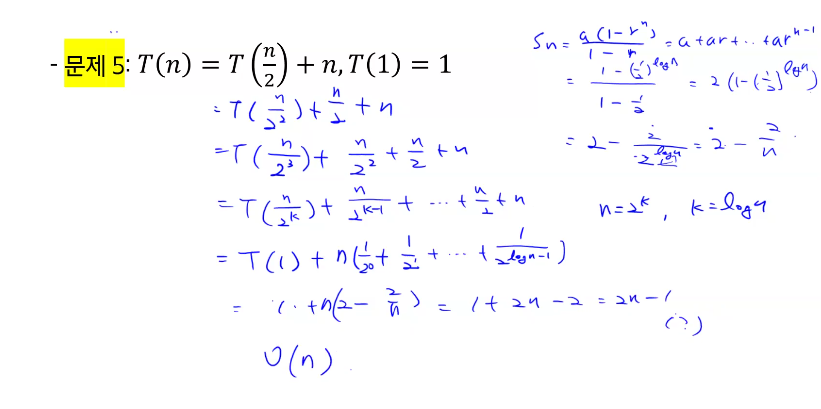 - 문제 5: T(n) = T(n/2) + n, T(1) = 1
= T(n/2²) + n/2 + n
= T(n/2³) + n/2² + n/2 + n
= T(n/2ᵏ) + n/2ᵏ⁻¹ + ··· + n/2 + n
= T(1) + n(1/2⁰ + 1/2¹ + ··· + 1/2^(logn-1))
= 1 + n(2 - 2/n) = 1 + 2n - 2 = 2n - 1
(?)
O(n)
Sn = a(1-rⁿ)/(1-r) = a + ar + ·· + arⁿ⁻¹
= (1-(1/2)^logn)/(1-1/2) = 2(1-(1/2)^logn)
= 2 - 2/2^logn = 2 - 2/n
n=2ᵏ, k=logn